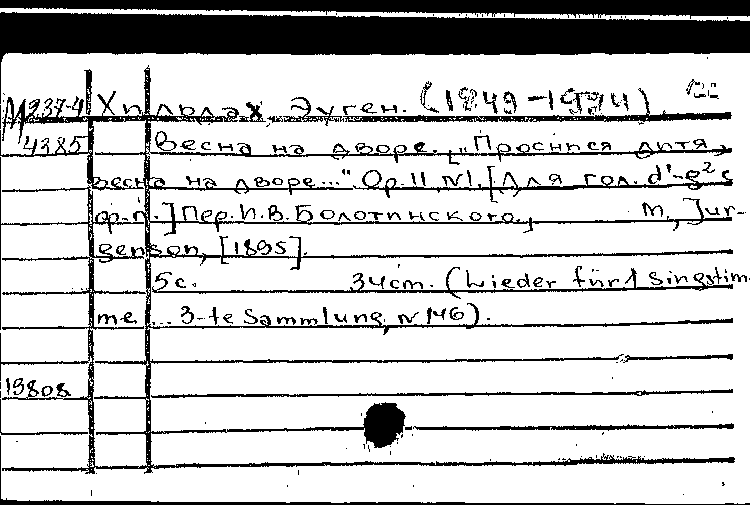 М237-4 Хильдах, Эуген. (1849-1924).
4385 Весна на дворе. [„Проснися дитя,
весна на дворе..." Ор.11, N1. [Для гол. d¹-g² с
ф-п.] Пер. И.В. Болотинского. М., Jur-
genson, [1895].
5с. 34cm. (Lieder für 1 Singstim-
me... 3-te Sammlung, N 146).
19808